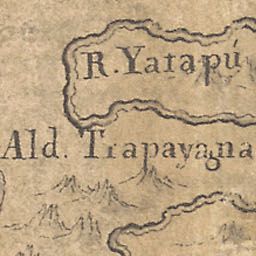 R. Yatapú
Ald. Trapayagna